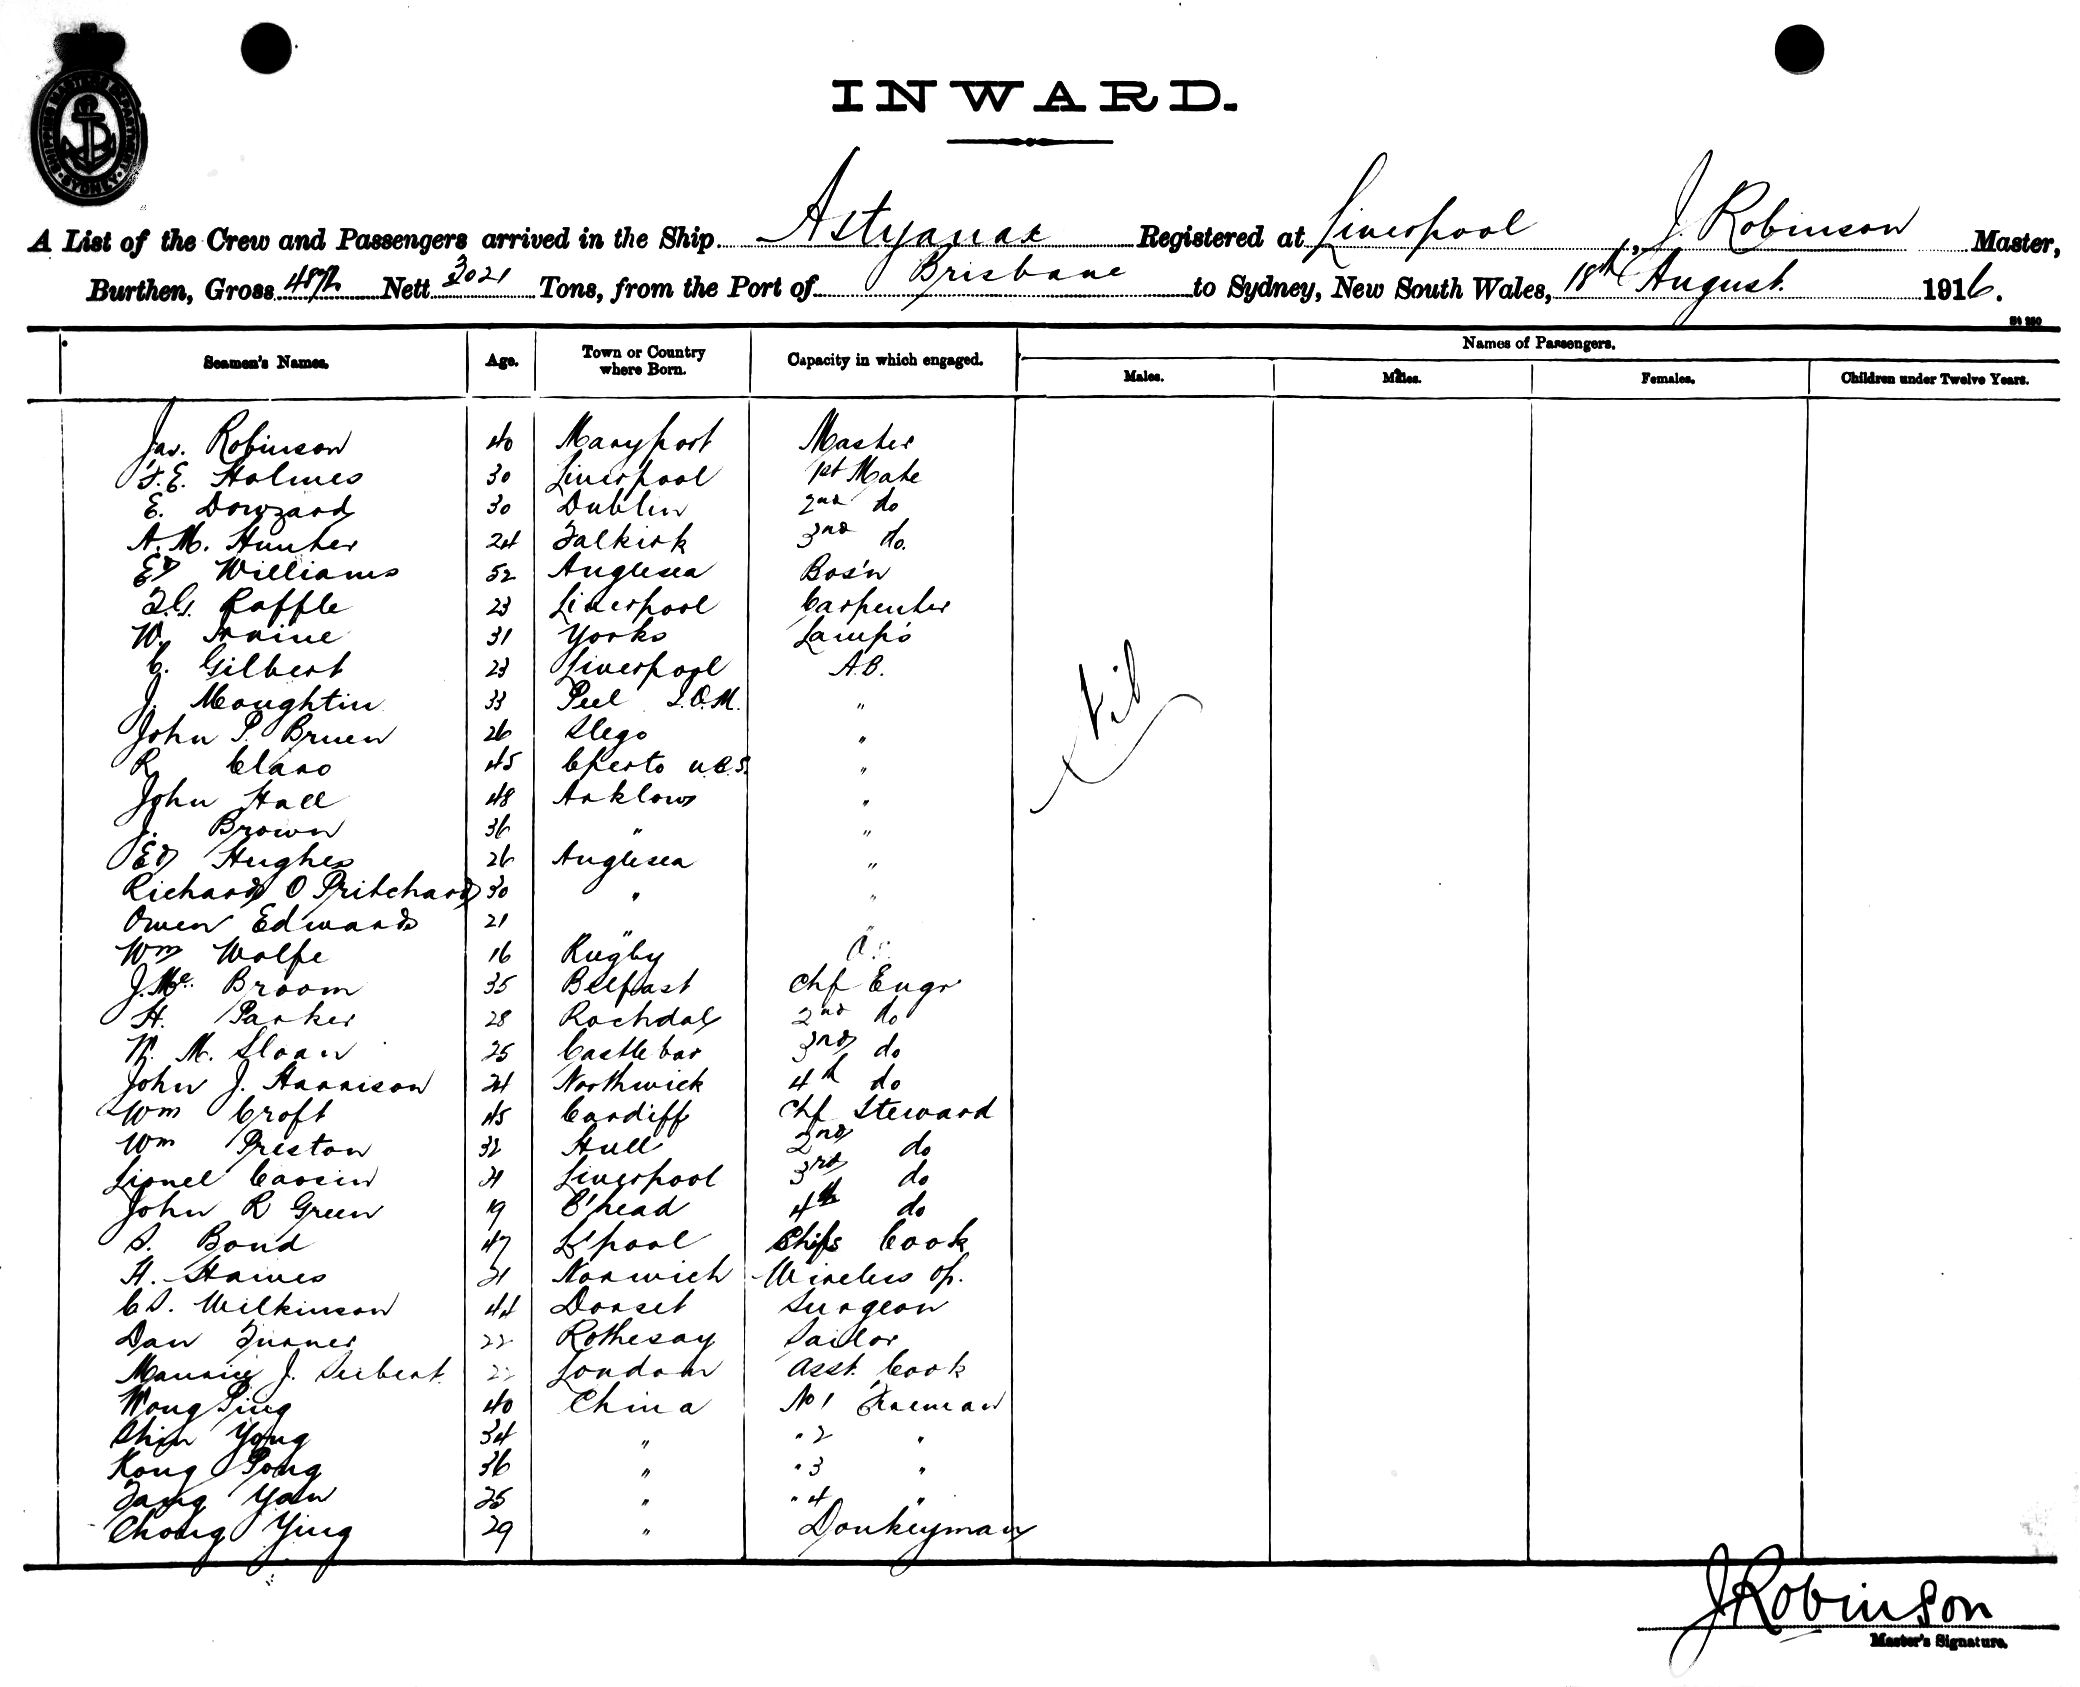 SHIPPING MASTER'S DEPARTMENT · SYDNEY ·
INWARD.
A List of the Crew and Passengers arrived in the Ship Astyanax Registered at Liverpool, J. Robinson Master,
Burthen, Gross 4872 Nett 3021 Tons, from the Port of Brisbane to Sydney, New South Wales, 18th August 1916.
Seamen's Names. Age. Town or Country where Born. Capacity in which engaged. Names of Passengers.
Males. Males. Females. Children under Twelve Years.
Jas. Robinson 40 Maryport Master
F. E. Holmes 30 Liverpool 1st Mate
E. Dowzard 30 Dublin 2nd do
A. M. Hunter 24 Falkirk 3rd do.
Ed Williams 52 Anglesea Bos'n
Raffle 23 Liverpool Carpenter
W. Irvine 31 Yorks Lamps
C. Gilbert 23 Liverpool A.B.
J. Moughtin 33 Peel I.O.M. "
John P. Bruen 26 Slego "
R Claro 45 "
John Hall 48 Arklow "
J. Brown 36 " "
Ed Hughes 26 Anglesea "
Richard O Pritchard 30 " "
Owen Edwards 21 " "
Wm Wolfe 16 Rugby
J. Mc Broom 35 Belfast Chf Engr
H. Parker 28 Rochdale 2nd do
W. M. Sloan 25 Castlebar 3rd do
John J. Harrison 24 Northwick 4th do
Wm Croft 45 Cardiff Chf Steward
Wm Preston 32 Hull 2nd do
Lionel 21 Liverpool 3rd do
John R Green 19 B'head 4th do
S. Bond 47 L'pool Ships Cook
H. Hawes 21 Norwich Wireless Op.
C S. Wilkinson 44 Dorset Surgeon
Dan Turner 22 Rothesay Sailor
Maurice J. Seibert 22 London Asst. Cook
Wong Ping 40 China No 1 Fireman
Shin Yong 34 " " 2 "
Kong Pong 36 " " 3 "
Yow 25 " " 4 "
Chong Ying 29 " Donkeyman
Nil
J Robinson
Master's Signature.